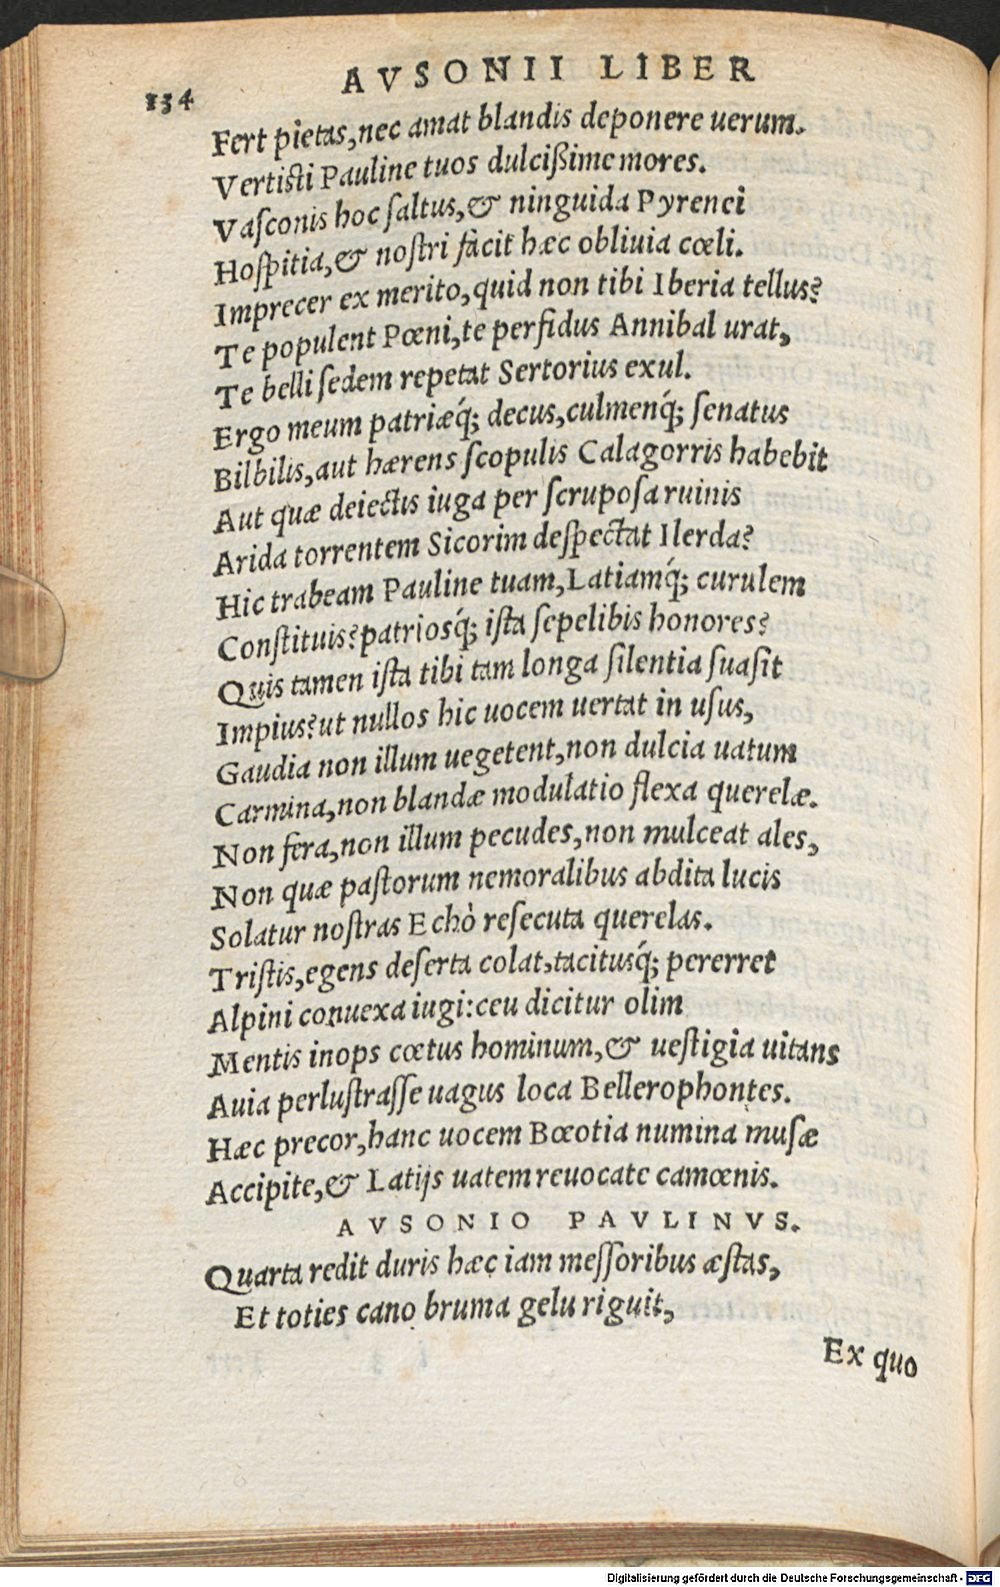 134
AVSONII LIBER
Fert pietas, nec amat blandis deponere uerum.
Vertisti Pauline tuos dulcißime mores.
Vaſconis hoc ſaltus, & ninguida Pyrenei
Hoſpitia, & noſtri facit hæc obliuia cœli.
Imprecer ex merito, quid non tibi Iberia tellus?
Te populent Pœni, te perfidus Annibal urat,
Te belli ſedem repetat Sertorius exul.
Ergo meum patriæq́; decus, culmenq́; ſenatus
Bilbilis, aut hærens ſcopulis Calagorris habebit
Aut quæ deiectis iuga per ſcrupoſa ruinis
Arida torrentem Sicorim deſpectat Ilerda?
Hic trabeam Pauline tuam, Latiamq́; curulem
Conſtituis? patriosq́; iſta ſepelibis honores?
Quis tamen iſta tibi tam longa ſilentia ſuaſit
Impius? ut nullos hic uocem uertat in uſus,
Gaudia non illum uegetent, non dulcia uatum
Carmina, non blandæ modulatio flexa querelæ.
Non fera, non illum pecudes, non mulceat ales,
Non quæ paſtorum nemoralibus abdita lucis
Solatur noſtras Echò reſecuta querelas.
Triſtis, egens deſerta colat, tacitusq́; pererret
Alpini conuexa iugi: ceu dicitur olim
Mentis inops cœtus hominum, & ueſtigia uitans
Auia perluſtraſſe uagus loca Bellerophontes.
Hæc precor, hanc uocem Bœotia numina muſæ
Accipite, & Latijs uatem reuocate camœnis.
AVSONIO PAVLINVS.
Quarta redit duris hæc iam meſſoribus æſtas,
Et toties cano bruma gelu riguit,
Ex quo
Digitalisierung gefördert durch die Deutsche Forschungsgemeinschaft - DFG